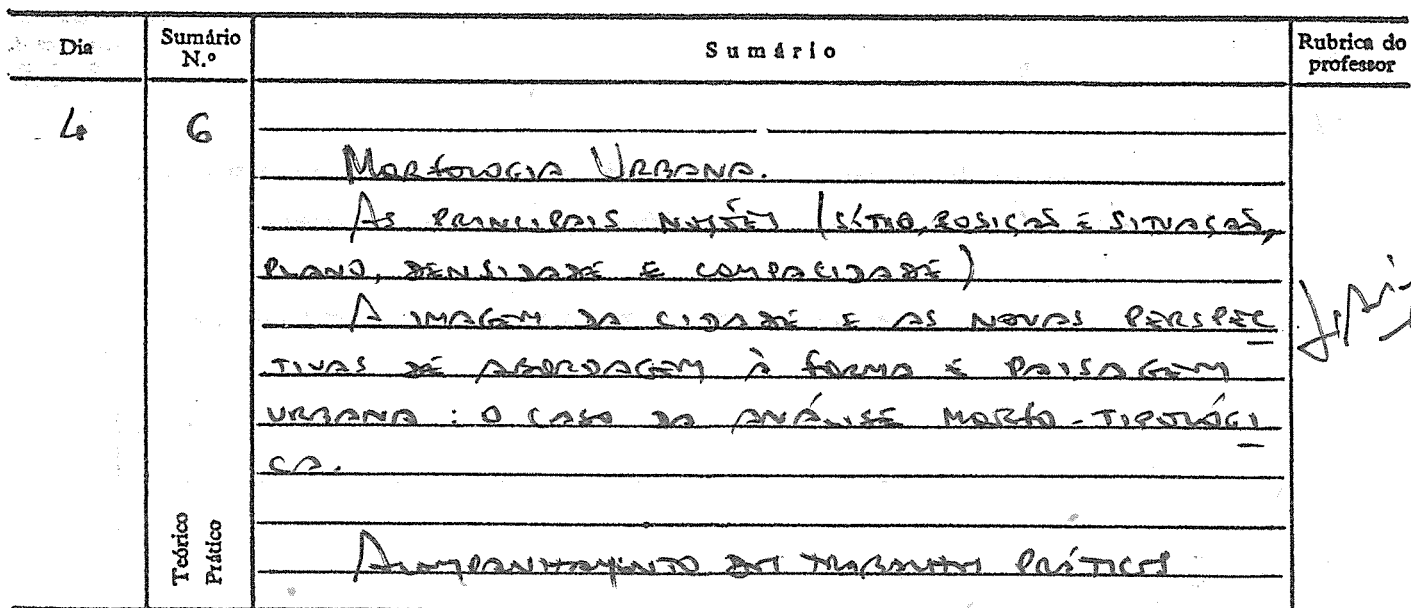 Dia Sumário N.º Sumário Rubrica do professor
4 6
MORFOLOGIA URBANA.
AS PRINCIPAIS NOÇÕES (SÍTIO, POSIÇÃO E SITUAÇÃO,
PLANO, DENSIDADE E COMPACIDADE)
A IMAGEM DA CIDADE E AS NOVAS PERSPEC
TIVAS DE ABORDAGEM À FORMA E PAISAGEM
URBANA : O CASO DA ANÁLISE MORFO-TIPOLÓGI
CA.
Teórico
Prático
ACOMPANHAMENTO DOS TRABALHOS PRÁTICOS